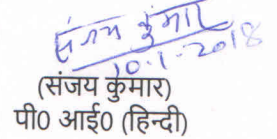 संजय कुमार
10.1.2018
(संजय कुमार)
पी0 आई0 (हिन्दी)